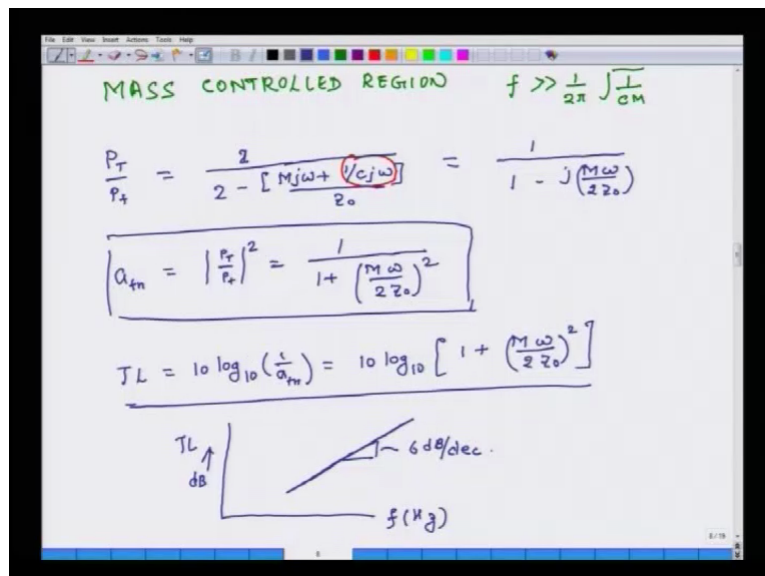 File Edit View Insert Actions Tools Help
MASS CONTROLLED REGION f >> 1/2π √(1/CM)
P_T/P_+ = 2/(2 - [Mjω + 1/Cjω]/Z_0) = 1/(1 - j(Mω/2Z_0))
a_tn = |P_T/P_+|^2 = 1/(1 + (Mω/2Z_0)^2)
TL = 10 log_10 (1/a_tn) = 10 log_10 [1 + (Mω/2Z_0)^2]
TL ↑ dB
6 dB/dec.
f (Hz)
8/19
8